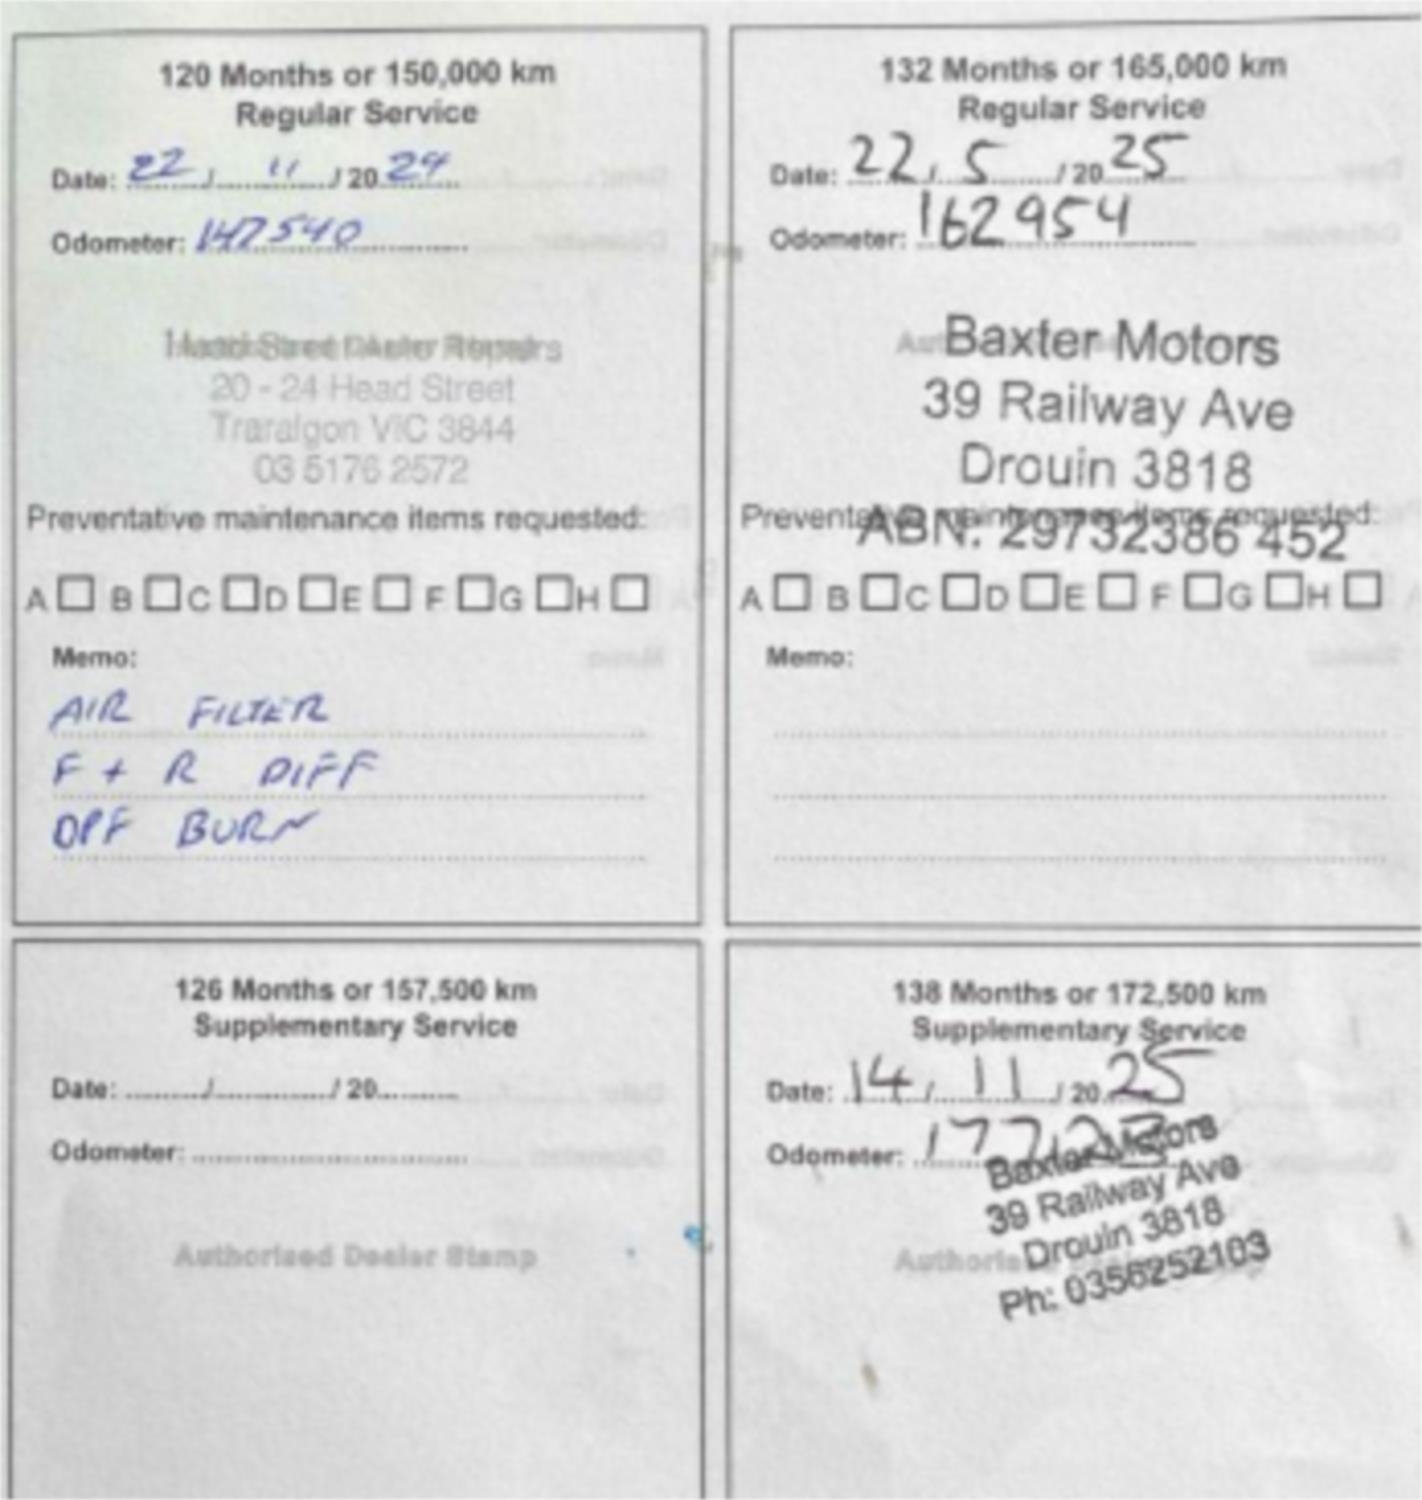 120 Months or 150,000 km
Regular Service
Date: 22 / 11 / 20 24
Odometer: 147540
Head Street Auto Repairs
20 - 24 Head Street
Traralgon VIC 3844
03 5176 2572
Preventative maintenance items requested:
A B C D E F G H
Memo:
AIR FILTER
F + R DIFF
DPF BURN
132 Months or 165,000 km
Regular Service
Date: 22 / 5 / 20 25
Odometer: 162954
Baxter Motors
39 Railway Ave
Drouin 3818
Preventative maintenance items requested:
ABN: 29732386 452
A B C D E F G H
Memo:
126 Months or 157,500 km
Supplementary Service
Date: / / 20
Odometer:
Authorised Dealer Stamp
138 Months or 172,500 km
Supplementary Service
Date: 14 / 11 / 20 25
Odometer:
Baxter Motors
39 Railway Ave
Drouin 3818
Ph: 0356252103